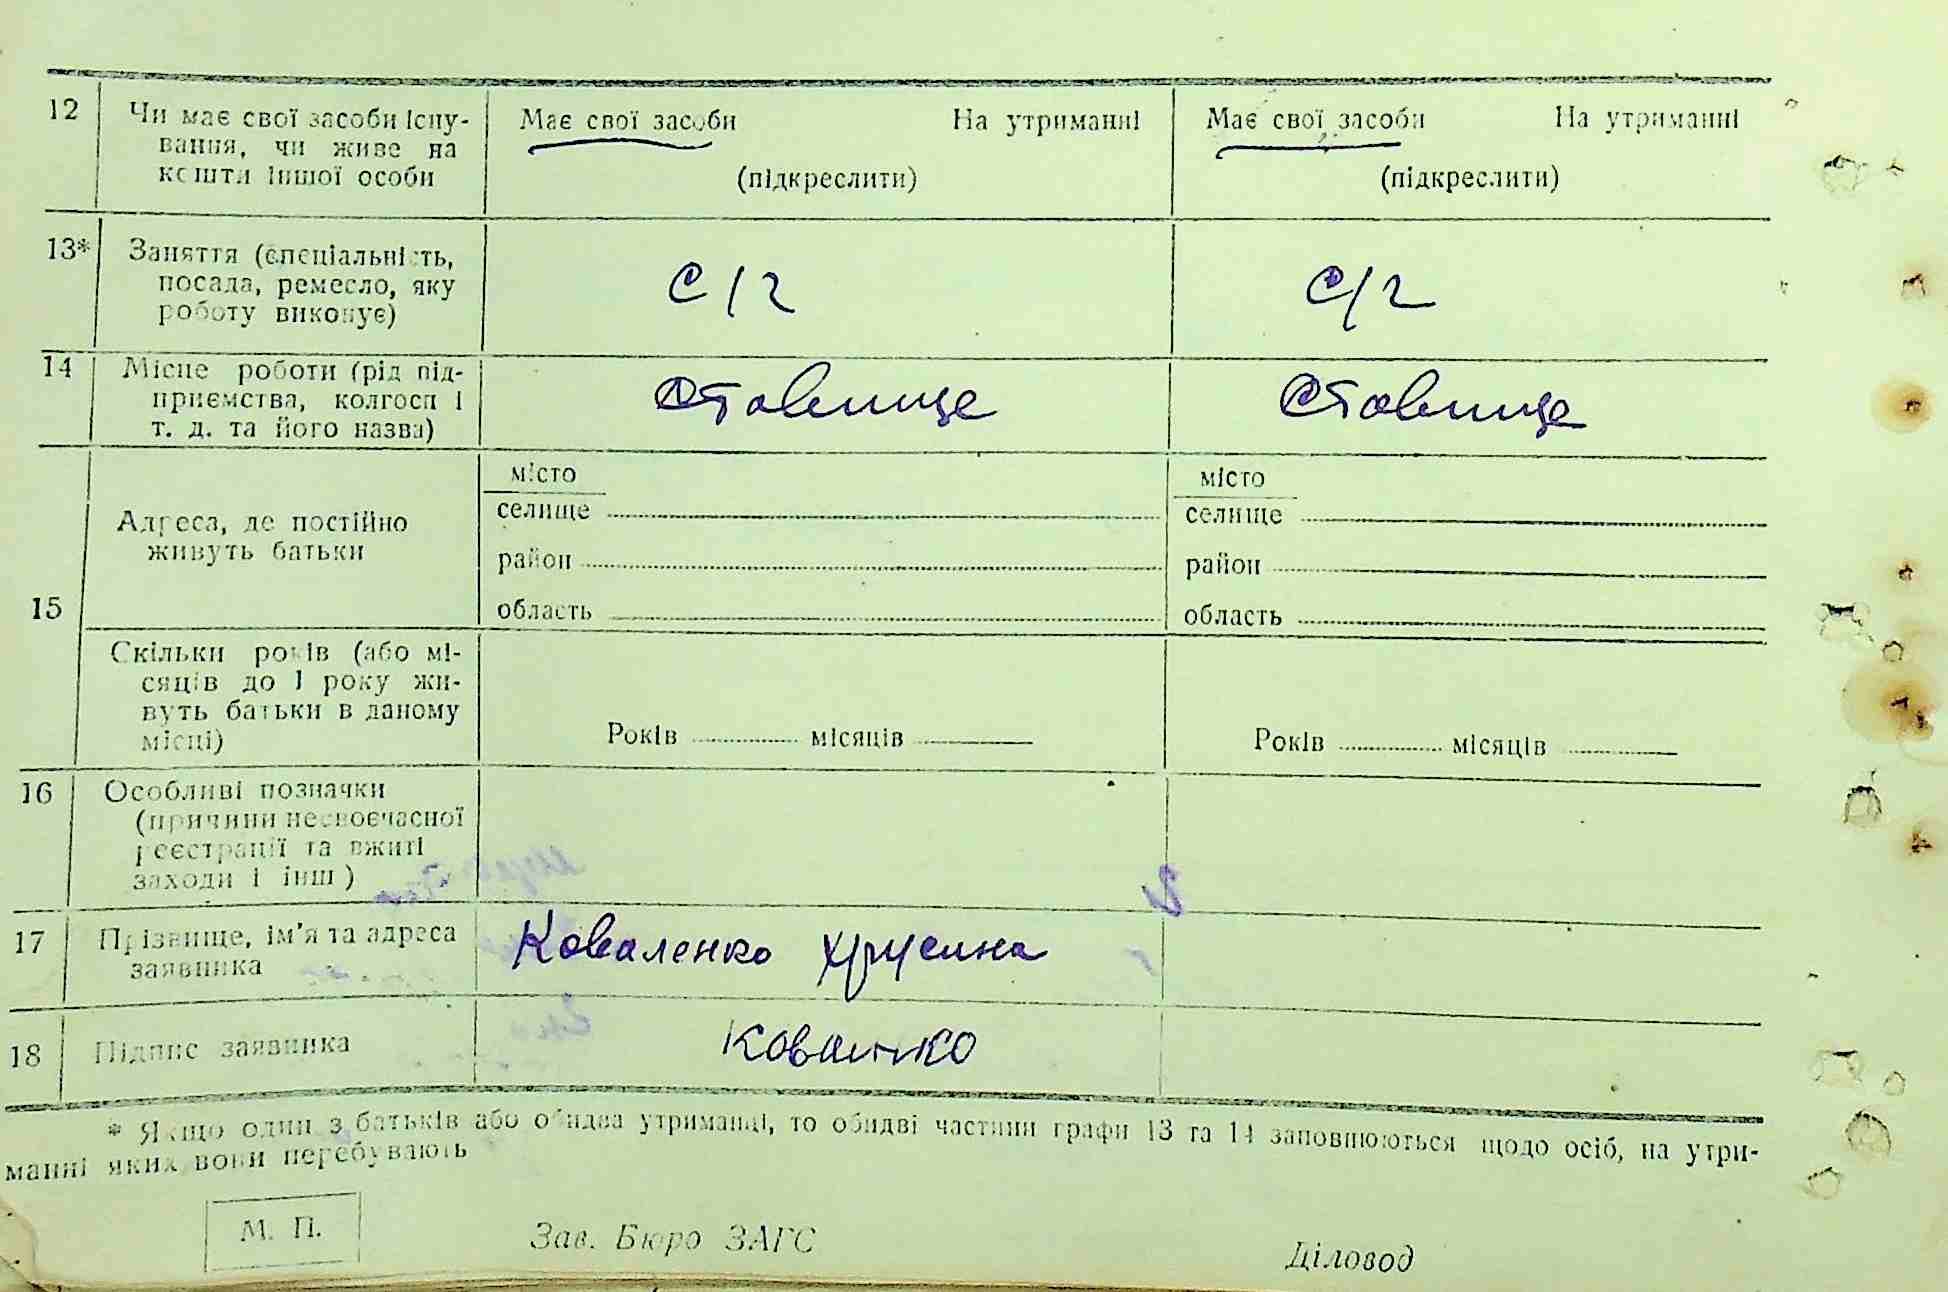 12 Чи має свої засоби існу- Має свої засоби На утриманні Має свої засоби На утриманні
вання, чи живе на
кошти іншої особи (підкреслити) (підкреслити)
13* Заняття (спеціальність,
посада, ремесло, яку С/г С/г
роботу виконує)
14 Місце роботи (рід під-
приємства, колгосп і Ставище Ставище
т. д. та його назва)
15 Адреса, де постійно
живуть батьки
місто місто
селище селище
район район
область область
Скільки років (або мі-
сяців до 1 року жи-
вуть батьки в даному
місці) Років місяців Років місяців
16 Особливі позначки
(причини несвоєчасної
реєстрації та вжиті
заходи і інш)
17 Прізвище, ім'я та адреса Коваленко Хрусина
заявника
18 Підпис заявника
* Якщо один з батьків або обидва утриманці, то обидві частини графи 13 та 14 заповнюються щодо осіб, на утри-
манні яких вони перебувають
М. П. Зав. Бюро ЗАГС Діловод